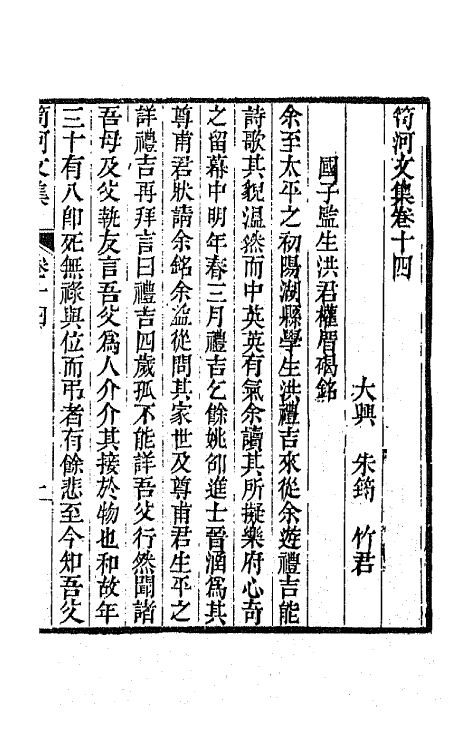 笥河文集卷十四
大興　朱筠　竹君
國子監生洪君權厝碣銘
余至太平之初陽湖縣學生洪禮吉來從余遊禮吉能
詩歌其貌溫然而中英英有氣余讀其所擬樂府心奇
之留幕中明年春三月禮吉乞餘姚邵進士晉涵爲其
尊甫君狀請余銘余益從問其家世及尊甫君生平之
詳禮吉再拜言曰禮吉四歲孤不能詳吾父行然聞諸
吾母及父執友言吾父爲人介介其接於物也和故年
三十有八卽死無祿與位而弔者有餘悲至今知吾父
笥河文集　卷十四　一